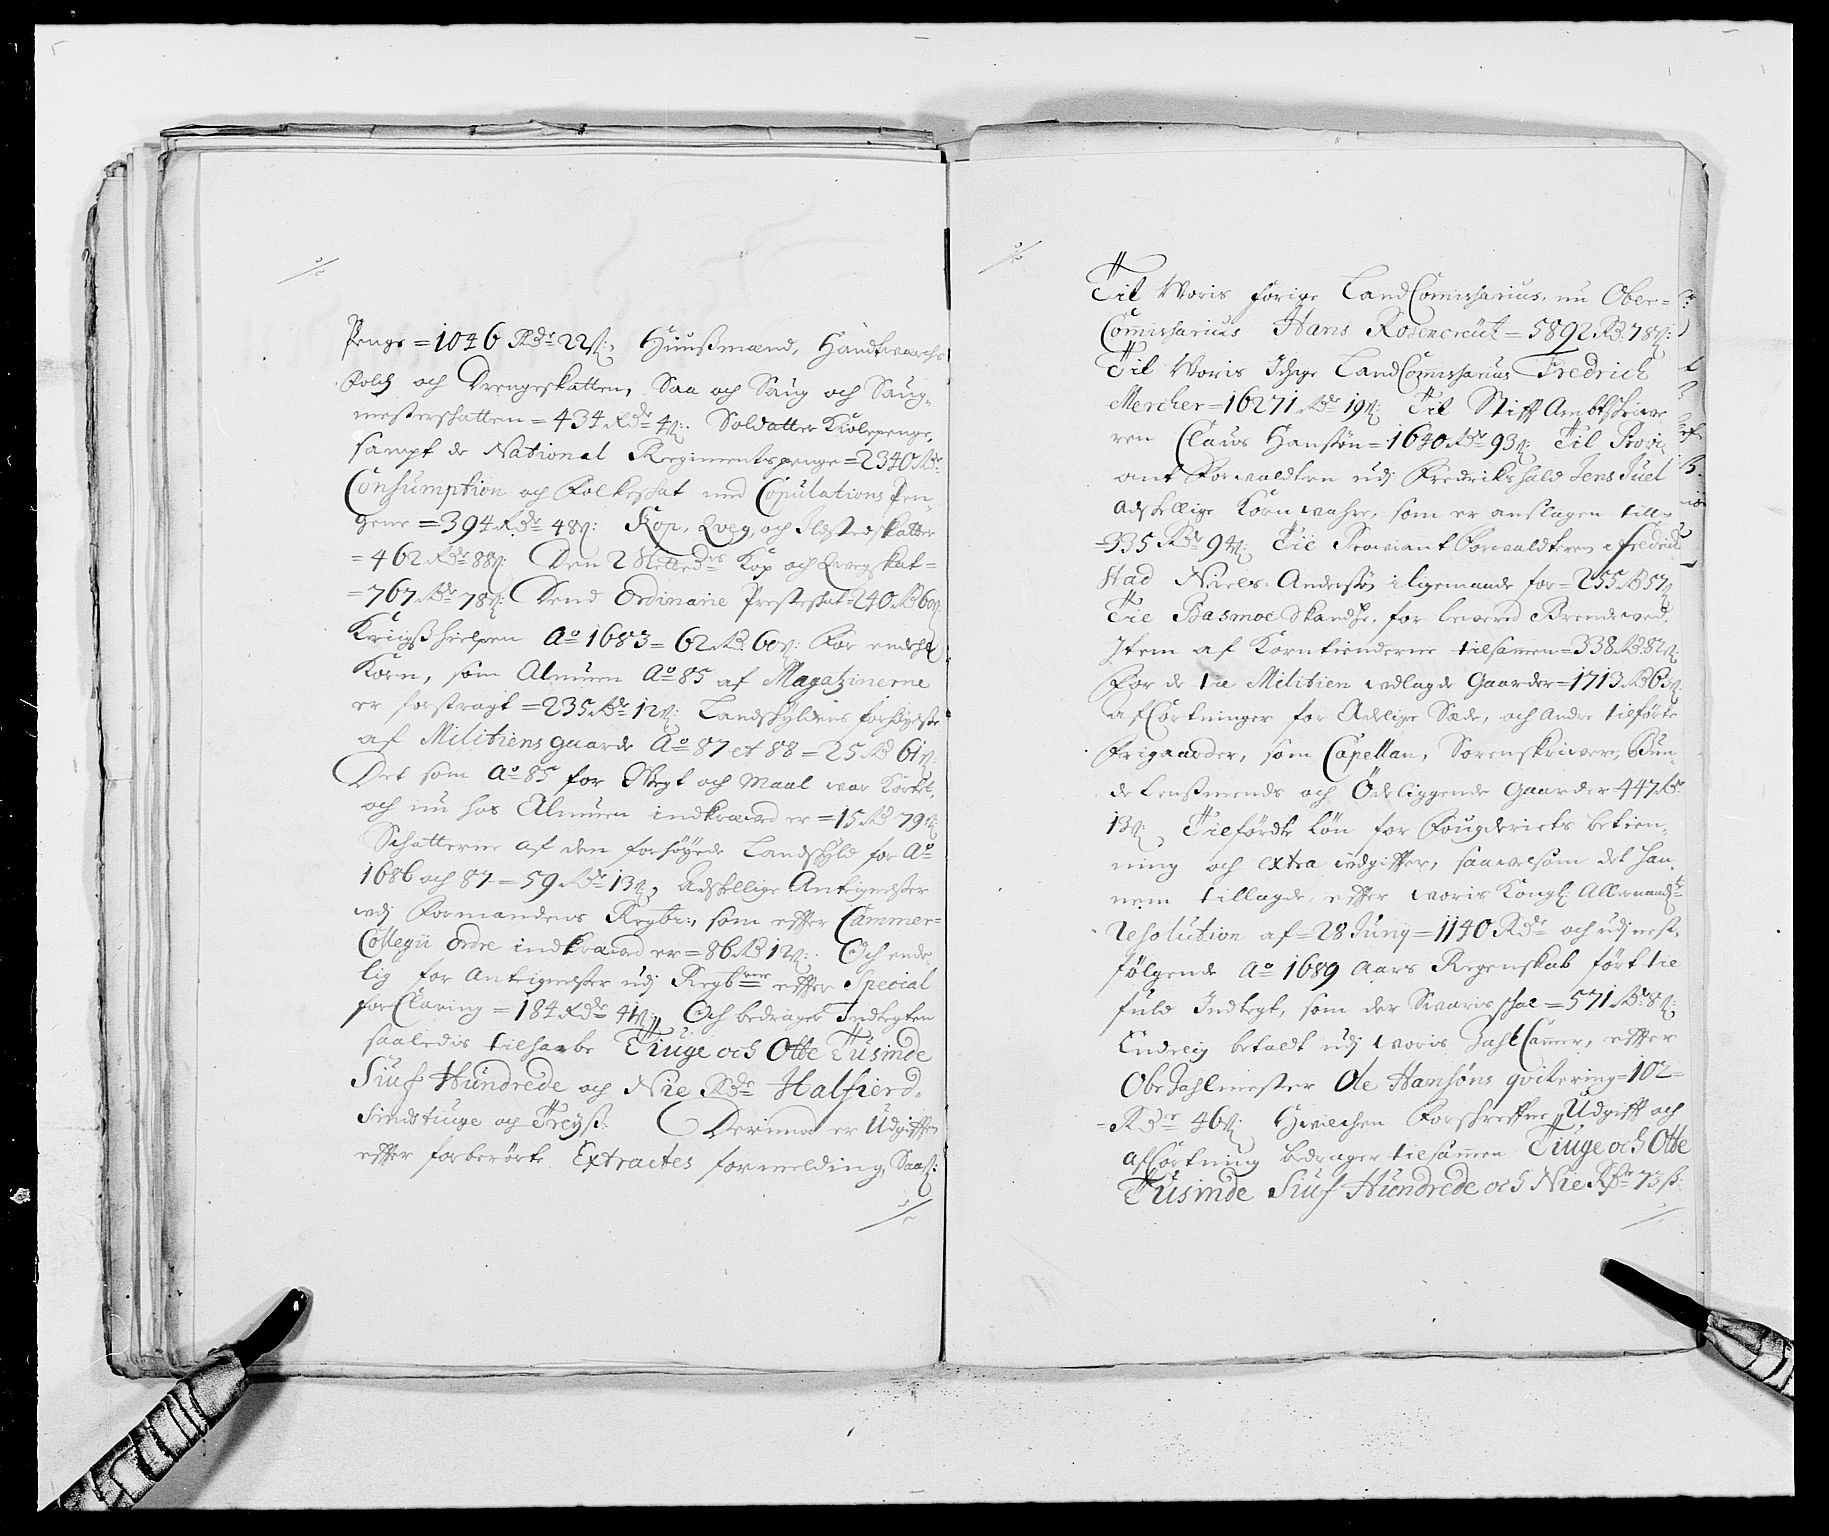 Penge = 1046 Rdr 22 ß: Huußmænd, Handtwerchs
Folch och Drengeskatten, Saa och Saug och Saug-
mesterskatten = 434 Rdr 4 ß: Soldatter Kiolepenge,
sampt de National Regimentspenge = 2340 Rdr
Consumption och Folkeskat med Copulations Pen-
gene = 394 Rdr 48 ß: Kop, Qveg, och Ildstedskatter
= 462 Rdr 88 ß: Den 2 Kop och Qvegskat =
= 767 Rdr 78 ß: Dend Ordinarie Presteskat = 240 Rd 60 ß
Krigß hielpen Ao 1683 = 62 Rd 60 ß: For endeel
Korn, som Almuen Ao 85 af Magatzinerne
er forstragt = 235 Rdr 12 ß: Landskyldens forhøyelse
af Militiens gaarde Ao 87 et 88 = 25 Rd 61 ß:
Det som Ao 85 for Vegt och Maal war Kortet,
och nu hos Almuen indkræved er = 15 Rd 79 ß
Schatterne af den forhøyede Landskyld for Ao
1686 och 87 = 59 Rdr 13 ß, Adskellige Antegnelser
udj Formandens Regbr:, som effter Cammer-
Collegii Ordre indkræved er = 86 Rd 12 ß: Och ende-
lig for Antegnelser udj Regb effter Special
forClaring = 184 Rdr 41 ß Och bedrager Indtegten
saaledis tilhaabe Tiuge och Otte Tusinde
Siuf Hundrede och Nie Rdr Halfierd-
sindstiuge og Treyß: Derimod er Udgifften
effter forberørte Extractes formelding, Saa:
Til Woris forige LandComissarius, nu Ober-
Comissarius Hans Rosencreut = 5892 Rd 78 ß:
Til Woris Ichige LandComissarius Fredrich
Mercher = 16271 Rdr 19 ß: Til Stifft Ambtskriwe
ren Claus Hansøn = 1640 Rdr 93 ß: Til Provi-
ant Forwaldten udj Fredrikshald Jens Juel
adskellige Kornwahre, som er anslagen till =
= 335 Rdr 94 ß: Til Proviant Forwalteren i Fridrick
stad Niels Andersøn i ligemaade for = 255 Rd 57 ß
Til Basmoe Skandse, for lewered Brendeved,
Item af Korntienderne tilsamen = 338 Rd 82 ß
For de til Militien udlagde Gaarder = 1713 Rd 63 ß
afCortninger for Adelige Sæde, och andre tilførte
Frigaarder, som Capellan, Sorenskriwer, Bun-
de Lenßmends och Ødeliggende Gaarder 447 Rdr
13 ß: Tilførdte Løn for Fougderiets betien-
ning och extra udgiffter, saavelsom det han-
nem tillagde, effter woris Kongl: Allernaadte
Resolution af = 28 Juny = 1140 Rdr och udj nest-
følgende Ao 1689 Aars Regenskab ført til
fuld Indtegt, som der Swaris skal = 571 Rdr 8 ß:
Endelig betaldt udj woris ZahlCamer, effter
OberZahlmester Ole Hansøns qvitering = 102 =
= Rdr 46 ß: Hvilchen Forschreffne Udgifft och
afCortning bedrager tilsamen Tiuge och Otte
Tusinde Siuf Hundrede och Nie Rdr 73 ß: